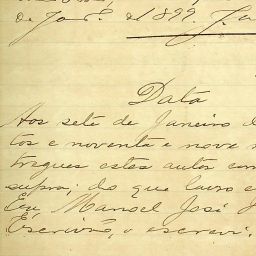 de Janº. de 1899. J
Data
Aos sete de Janeiro d
tos e noventa e nove
tregues estes autos com
supra; do que lavro e
Eu, Manoel José
Escrivão, o escrevi.